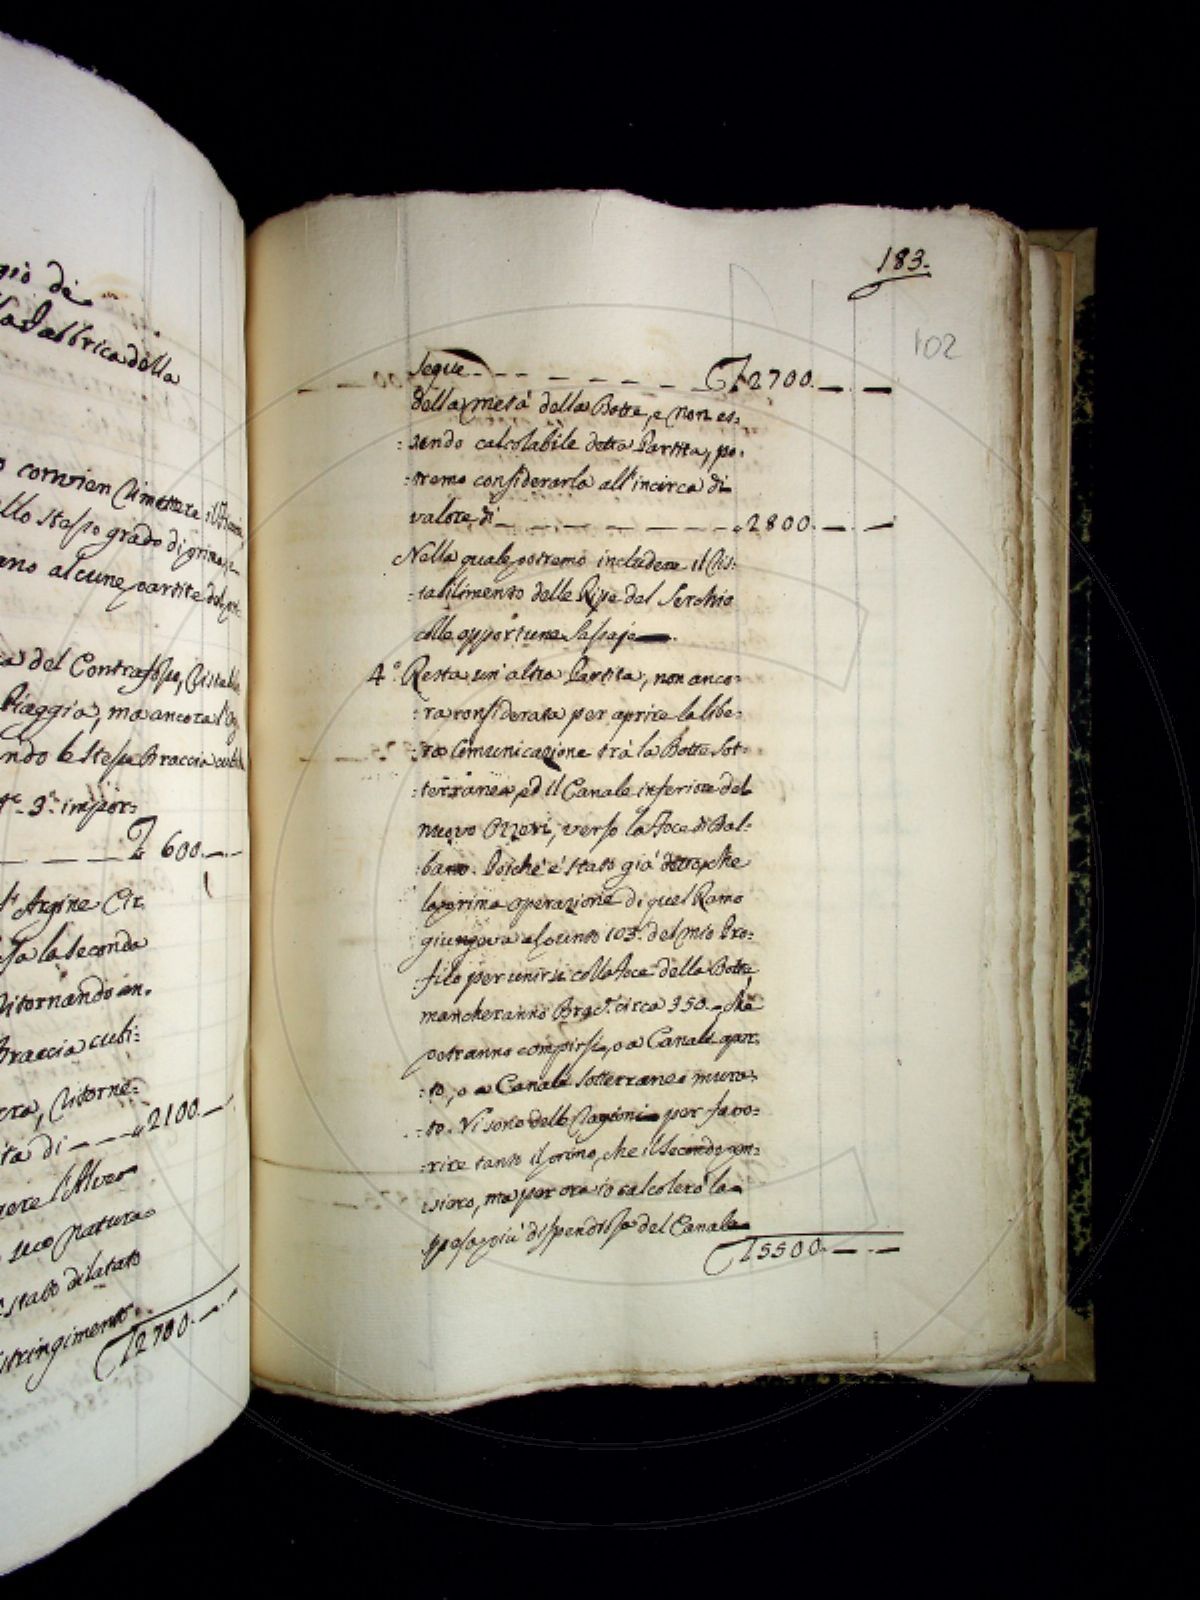 gio di
la Fabbrica della
o convien rimettere il
llo stesso grado di prima, e
nno alcune partite del
a del Contrafosso, ristabi
Piaggia, ma ancora l'
ndo le stesse Braccia cub
3.ª impor=
£ 600. —
l'Argine Cir
la seconda
ritornando in.
Braccia cubi=
ra, ritorne=
ta di — — — „ 2100. —
gere l'Alveo
suo natura
stato dilatato
stringimento.
£ 2700. — —
183.
102
Segue — — — — — — £ 2700. — . —
della metà della Botte, e non es=
=sendo calcolabile detta Partita, po=
=tremo considerarla all'incirca di
valore di — — — — — — „ 2800. — . —
Nella quale potremo includere il ris=
=tabilimento delle Ripe del Serchio
colle opportune Sassaje.
4.º Resta un'altra Partita, non anco=
=ra considerata per aprire la libe=
=ra Comunicazione trà la Botte Sot=
=terranea, ed il Canale inferiore del
nuovo Ozzeri, verso la Foce di Bal=
=bano. Poichè è stato già detto, che
la prima operazione di quel Ramo
giungeva al punto 103. del mio Pro=
=filo per unirsi colla foce della Botte
mancheranno Brac. circa 350. che
potranno compirsi, o a Canale aper=
=to, o a Canale Sotterraneo mura=
=to. Vi sono delle ragioni per favo=
=rire tanto il primo, che il secondo pen=
=siero, ma per ora io calcolerò la
spesa più dispendiosa del Canale
£ 5500. — . —